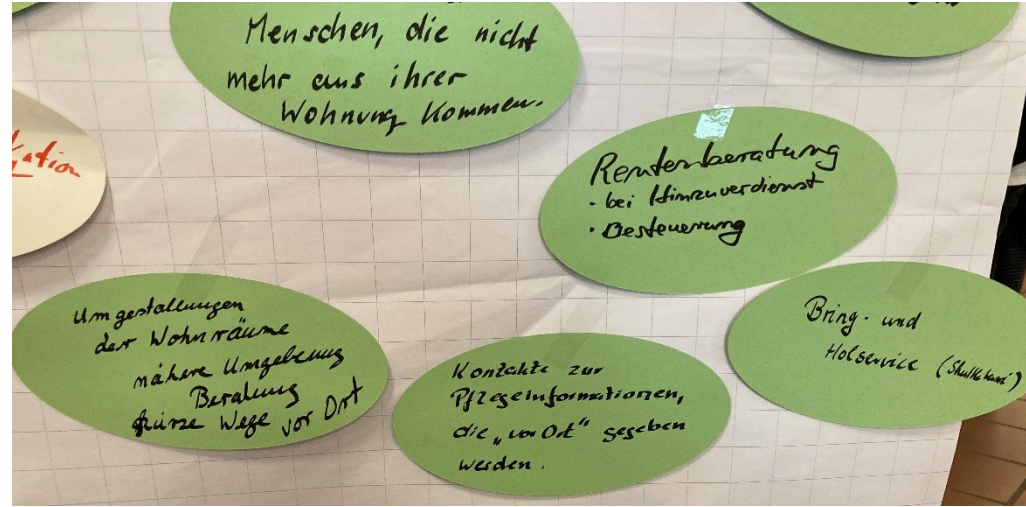 Menschen, die nicht
mehr aus ihrer
Wohnung kommen.
Rentenberatung
· bei Hinzuverdienst
· Besteuerung
Umgestaltungen
der Wohnräume
nähere Umgebung
Beratung
kürze Wege vor Ort
Kontakte zur
Pflegeinformationen,
die „vor Ort“ gegeben
werden.
Bring- und
Holservice